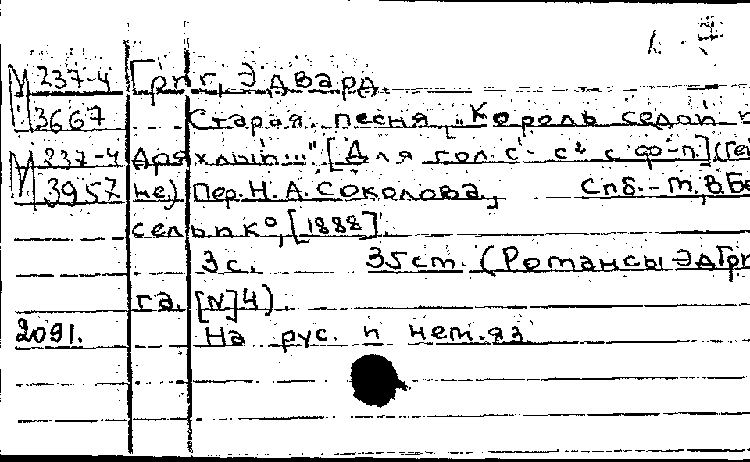 М 237-4 Григ, Эдвард.
3667 Старая песня „Король седой и
М 237-4 дряхлый..." [Для гол. с¹- с² с ф-п.] (Гей
3957 не) Пер. Н.А. Соколова, Спб.-М, В. Бе
сель и К⁰, [1888].
3 с. 35 ст. (Романсы Эд Гри
га. [N] 4).
2091. На рус. и нем. яз